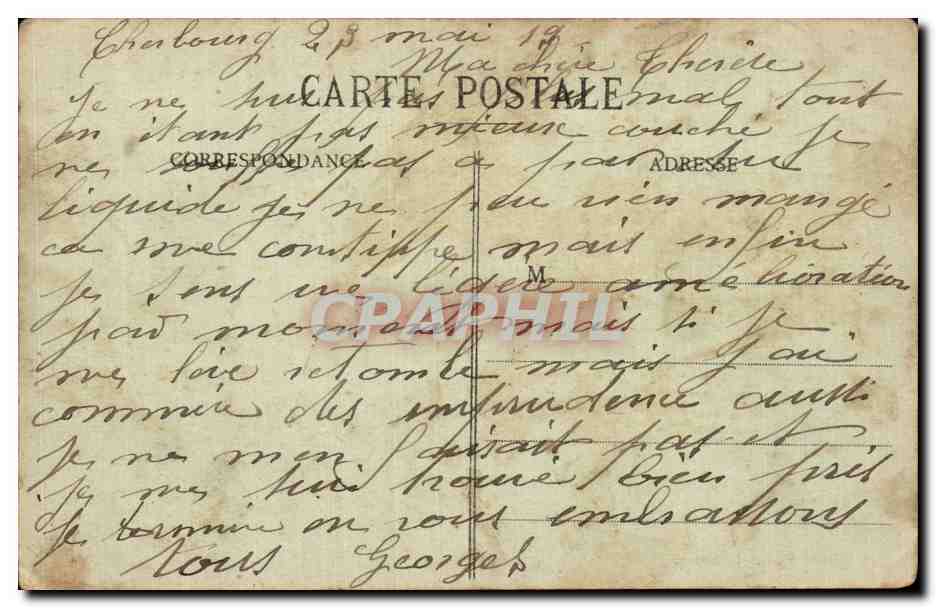 Cherbourg 23 mai 19
Ma chère
CARTE POSTALE
je ne sui pas plus mal tout
en étant pas mieux couché je
CORRESPONDANCE
ADRESSE
ne pas a par du
liquide je ne peu rien mangé
ca me constippe mais enfin
M
je sens une légère amélioration
CPRAPHIL
par moment mais si je
me lève retombe mais j'ai
commire des emprudence aussi
je ne men faisait pas et
je me sui trouvé bien pris
je termine en vous embrassons
tous Georges